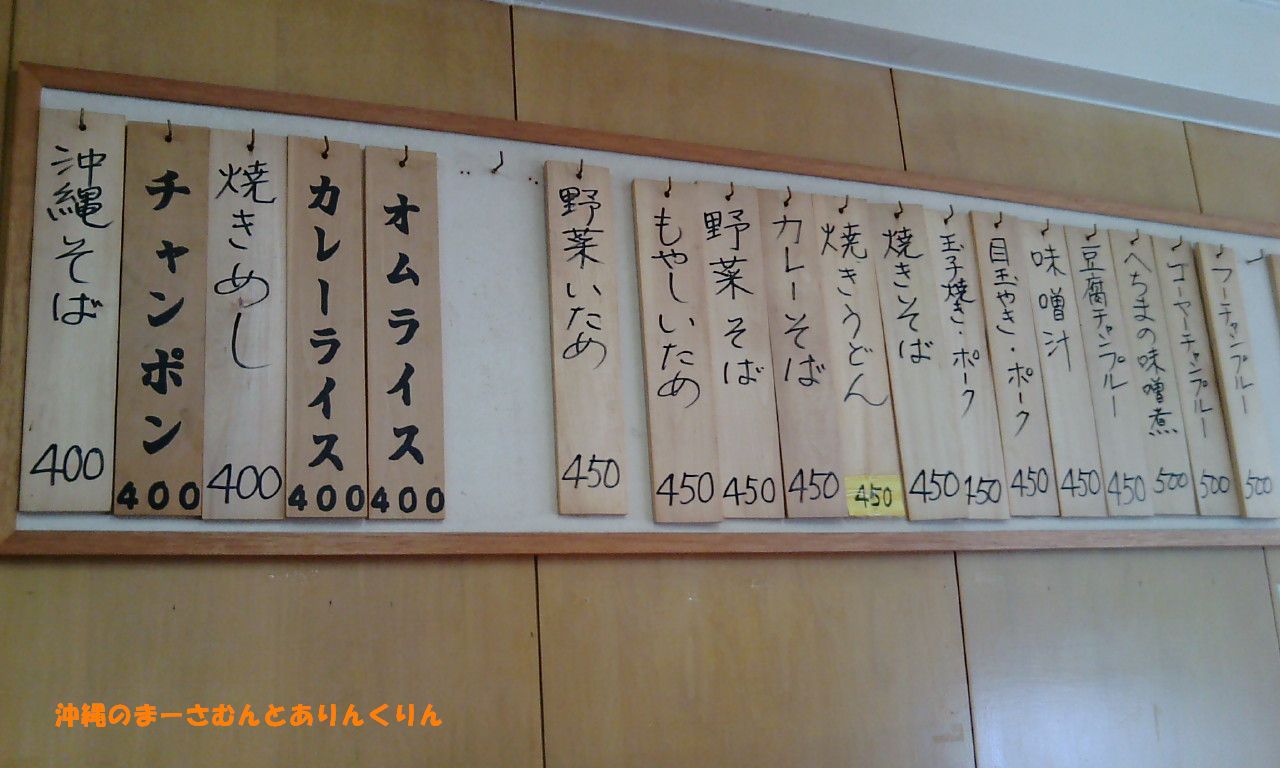 沖縄そば
400
チャンポン
400
焼きめし
400
カレーライス
400
オムライス
400
野菜いため
450
もやしいため
450
野菜そば
450
カレーそば
450
焼きうどん
450
焼きそば
450
玉子焼き・ポーク
450
目玉やき・ポーク
450
味噌汁
450
豆腐チャンプルー
450
へちまの味噌煮
500
ゴーヤーチャンプルー
500
フーチャンプルー
500
沖縄のまーさむんとありんくりん